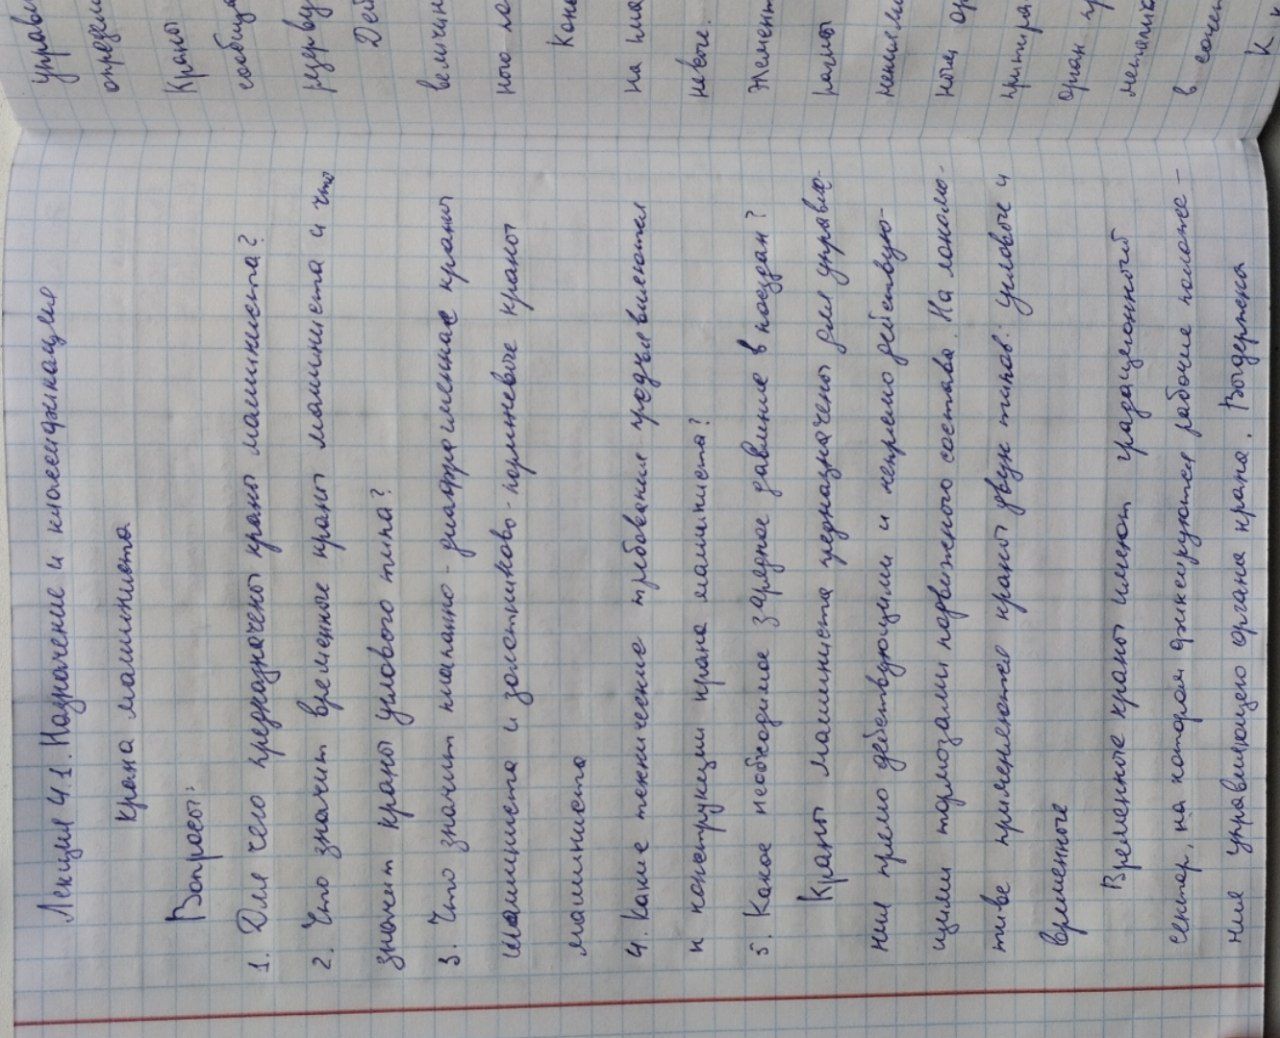 Лекция 4.1. Назначение и классификация
крана машиниста
Вопросы:
1. Для чего предназначены краны машиниста?
2. Что значит временные краны машиниста и что
значит краны углового типа?
3. Что значит клапанно-диафрагменные краны
машиниста и золотниково-поршневые краны
машиниста
4. Какие технические требования предъявляются
к конструкции крана машиниста?
5. Какое необходимое зарядное давление в поездах?
Краны машиниста предназначены для управле-
ния прямо действующими и непрямо действую-
щими тормозами подвижного состава. На локомо-
тиве применяются краны двух типов: угловые и
временные
Временные краны имеют градационный
сектор, на котором фиксируются рабочие положе-
ния управляющего органа крана. Выдержка
управ
определ
Краны
сообща
резерву
Дей
величин
ного по
Кон
на ма
невые.
Элемент
раты
ном ор
притира
орган пр
металли
в сочет
К к